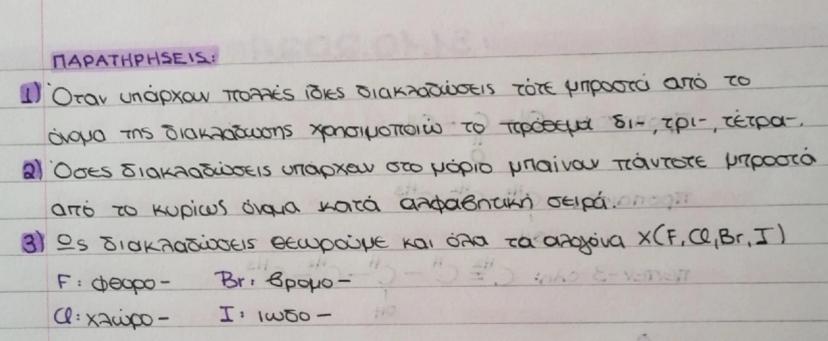 ΠΑΡΑΤΗΡΗSΕΙS:
1) Όταν υπάρχουν πολλές ίδιες διακλαδώσεις τότε μπροστά από το
όνομα της διακλάδωσης χρησιμοποιώ το πρόθεμα δι-, τρι-, τέτρα-.
2) Όσες διακλαδώσεις υπάρχουν στο μόριο μπαίνουν πάντοτε μπροστά
από το κυρίως όνομα κατά αλφαβητική σειρά.
3) Ως διακλαδώσεις θεωρούμε και όλα τα αλογόνα X(F, Cl, Br, I)
F: φθορο- Br: βρομο-
Cl: χλώρο- I: ιωδο-